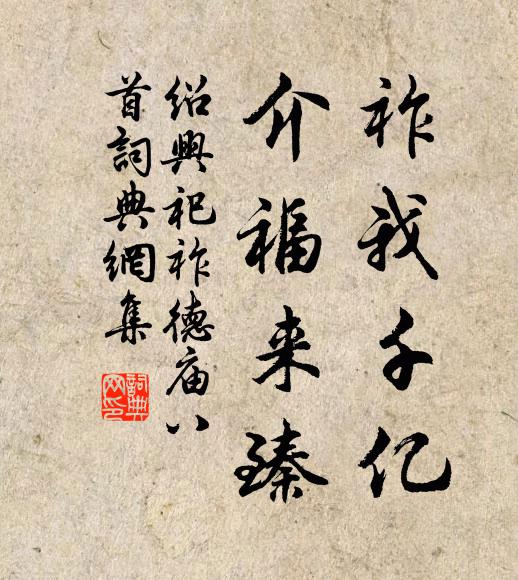 祚我千亿
介福来臻
绍興祀祚德庙八
首詞典網集
詞典
网印